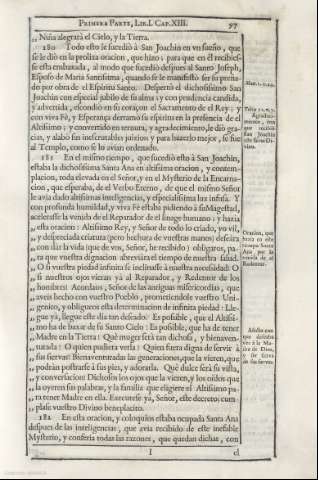 PRIMERA PARTE, LIB. I. CAP. XIII. 97
„ Niña alegrarà el Cielo, y la Tierra.
180 Todo esto le sucediò à San Joachin en vn sueño, que
se le diò en la prolixa oracion, que hizo: para que en èl recibies-
se esta embaxada, al modo que sucediò despues al Santo Joseph,
Esposo de Maria Santissima, quando se le manifestò ser su preña-
do por obra de el Espiritu Santo. Despertò el dichosissimo San
Joachin con especial jubilo de su alma: y con prudencia candida,
y advertida, escondiò en su coraçon el Sacramento de el Rey: y
con viva Fè, y Esperança derramò su espiritu en la presencia de el
Altissimo: y convertido en ternura, y agradecimiento, le diò gra-
cias, y alabò sus inescrutables juizios: y para hazerlo mejor, se fue
al Templo, como se lo avian ordenado.
181 En el mismo tiempo, que sucediò esto à San Joachin,
estaba la dichosissima Santa Ana en altissima oracion, y contem-
placion, toda elevada en el Señor, y en el Mysterio de la Encarna-
cion, que esperaba, de el Verbo Eterno, de que el mismo Señor
le avia dado altissimas inteligencias, y especialissima luz infusa. Y
con profunda humildad, y viva Fè estaba pidiendo à su Magestad,
acelerasse la venida de el Reparador de el linage humano: y hazia
„ esta oracion: Altissimo Rey, y Señor de todo lo criado, yo vil,
„ y despreciada criatura (pero hechura de vuestras manos) deseàra
„ con dàr la vida (que de vos, Señor, he recibido) obligaros, pa-
„ ra que vuestra dignacion abreviàra el tiempo de nuestra salud.
„ O si vuestra piedad infinita se inclinasse à nuestra necessidad! O
„ si nuestros ojos vieran yà al Reparador, y Redentor de los
„ hombres! Acordaos, Señor de las antiguas misericordias, que
„ aveis hecho con vuestro Pueblo, prometiendole vuestro Uni-
„ genito, y obligueos esta determinacion de infinita piedad: Lle-
„ gue yà, llegue este dia tan deseado. Es possible, que el Altissi-
„ mo ha de baxar de su Santo Cielo? Es possible, que ha de tener
„ Madre en la Tierra? Què muger serà tan dichosa, y bienaven-
„ turada? O quien pudiera verla! Quien fuera digna de servir à
„ sus siervas! Bienaventuradas las generaciones, que la vieren, que
„ podràn postrarse à sus pies, y adorarla. Què dulce serà su vista,
„ y conversacion! Dichosos los ojos que la vieren, y los oìdos que
„ la oyeren sus palabras, y la familia que eligiere el Altissimo pa-
„ ra tener Madre en ella. Executese yà, Señor, este decreto: cum-
„ plase vuestro Divino beneplacito.
182 En esta oracion, y coloquios estaba ocupada Santa Ana
despues de las inteligencias, que avia recibido de este inefable
Mysterio, y conferia todas las razones, que quedan dichas, con
I el
Agradeci-
miento, con
que recibiò
San Joachin
este favor Di-
vino.
Oracion, que
hazia en este
tiempo Santa
Ana por la
venida de el
Redentor.
Afectos con
que deseaba
vèr à la Ma-
dre de Dios,
y ser sierva
de sus siervas.